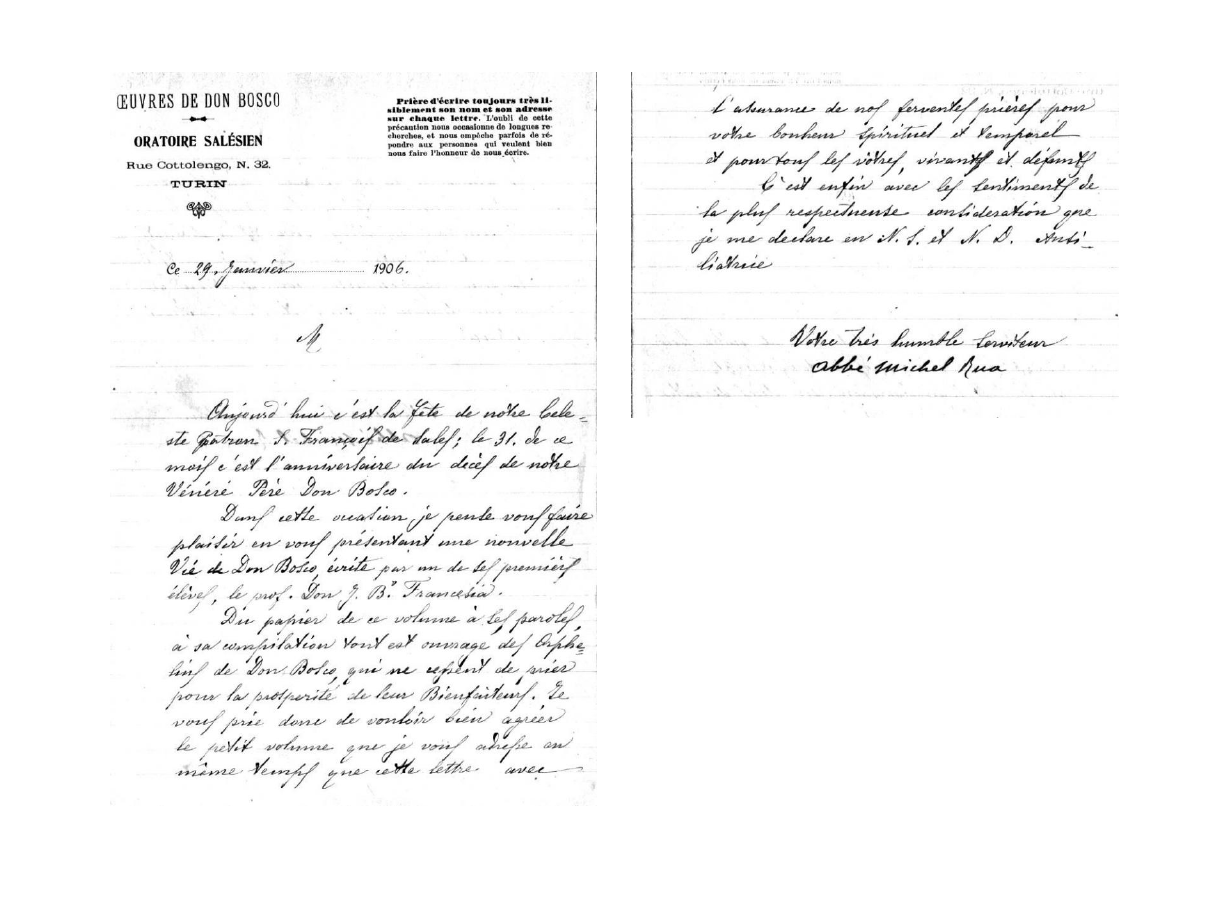 ŒUVRES DE DON BOSCO
ORATOIRE SALÉSIEN
Rue Cottolengo, N. 32.
TURIN
Prière d'écrire toujours très li-
siblement son nom et son adresse
sur chaque lettre. L'oubli de cette
précaution nous occasionne de longues re-
cherches, et nous empêche parfois de ré-
pondre aux personnes qui veulent bien
nous faire l'honneur de nous écrire.
Ce 29. Janvier 1906.
M
Aujourd'hui c'est la fête de notre Cele-
ste Patron S. François de Sales; le 31. de ce
mois c'est l'anniversaire du décès de notre
Vénéré Père Don Bosco.
Dans cette occasion, je pense vous faire
plaisir en vous présentant une nouvelle
Vie de Don Bosco, écrite par un de ses premiers
élèves, le prof. Don J. B. Francesia.
Du papier de ce volume à ses paroles,
à sa compilation tout est ouvrage des Orphe-
lins de Don Bosco, qui ne cessent de prier
pour la prosperité de leur Bienfaiteurs. Je
vous prie donc de vouloir bien agréer
le petit volume que je vous adresse au
même temps que cette lettre avec
l'assurance de nos ferventes prières pour
votre bonheur spirituel et temporel
et pour tous les vôtres, vivants et défunts
C'est enfin avec les sentiments de
la plus respectueuse consideration que
je me declare en N. S. et N. D. Auxi-
liatrice
Votre très humble serviteur
Abbé Michel Rua